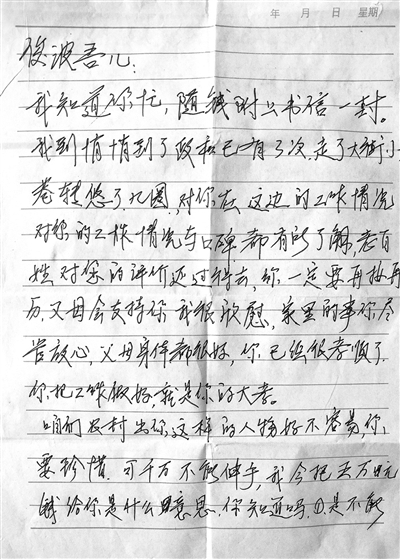 年 月 日 星期
俊波吾儿:
我知道你忙,随钱附上书信一封。
我到悄悄到了政和已有了次,走了大街小
巷转悠了几圈,对你在这边的工作情况
对你的工作情况与口碑都有所了解,老百
姓对你的评价还过得去,你一定要再接再
历,父母会支持你,我很欣慰,家里的事你尽
管放心,父母身体都很好,你已经很孝顺了.
你把工作做好,就是你的大孝。
咱们农村出你这样的人物好不容易,你
要珍惜.可千万不能伸手,我今把 万 元
钱给你是什么意思,你知道吗,①是不能